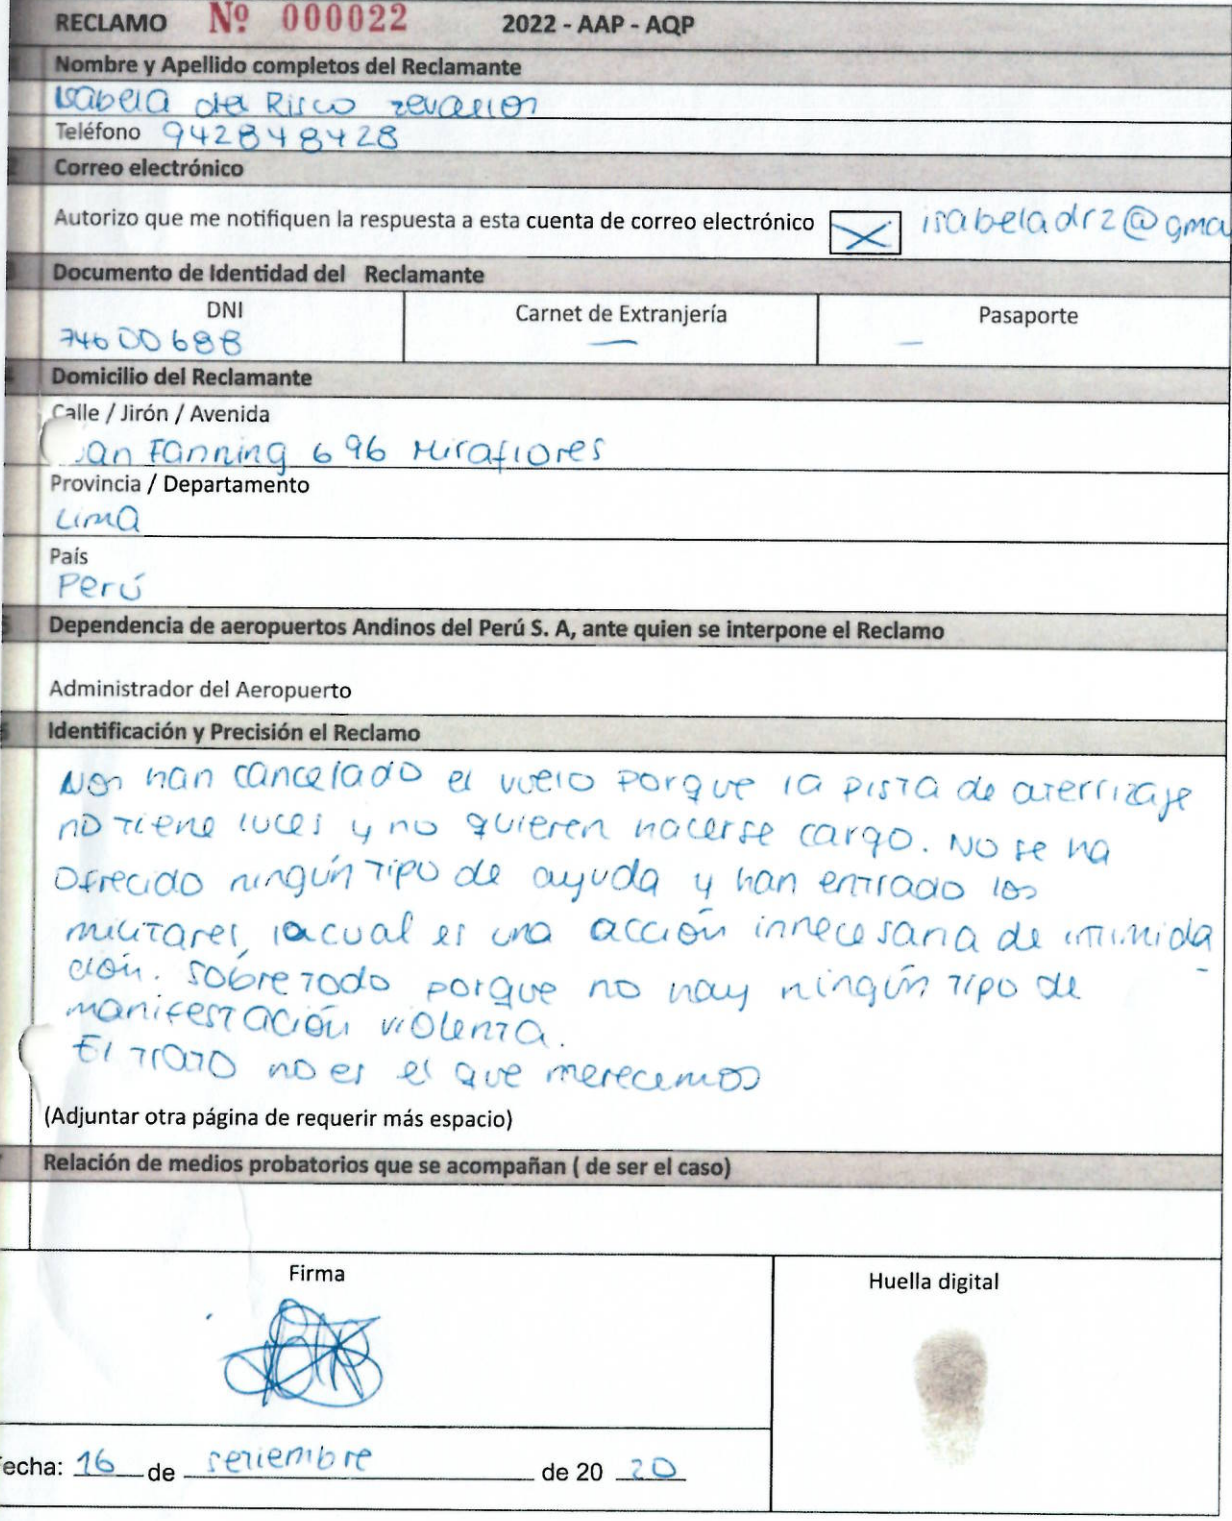 RECLAMO Nº 000022 2022 - AAP - AQP
Nombre y Apellido completos del Reclamante
Isabela del Risco
Teléfono 942848428
Correo electrónico
Autorizo que me notifiquen la respuesta a esta cuenta de correo electrónico isabeladrz@gma
Documento de Identidad del Reclamante
DNI Carnet de Extranjería Pasaporte
74600688 — —
Domicilio del Reclamante
Calle / Jirón / Avenida
an Fanning 696 Miraflores
Provincia / Departamento
Lima
País
Perú
Dependencia de aeropuertos Andinos del Perú S. A, ante quien se interpone el Reclamo
Administrador del Aeropuerto
Identificación y Precisión el Reclamo
Nos han cancelado el vuelo porque la pista de aterrizaje
no tiene luces y no quieren hacerse cargo. No se ha
ofrecido ningún tipo de ayuda y han entrado los
militares, la cual es una acción innecesaria de intimida
ción. Sobre todo porque no hay ningún tipo de
manifestación violenta.
El trato no es el que merecemos
(Adjuntar otra página de requerir más espacio)
Relación de medios probatorios que se acompañan ( de ser el caso)
Firma Huella digital
echa: 16 de setiembre de 20 20